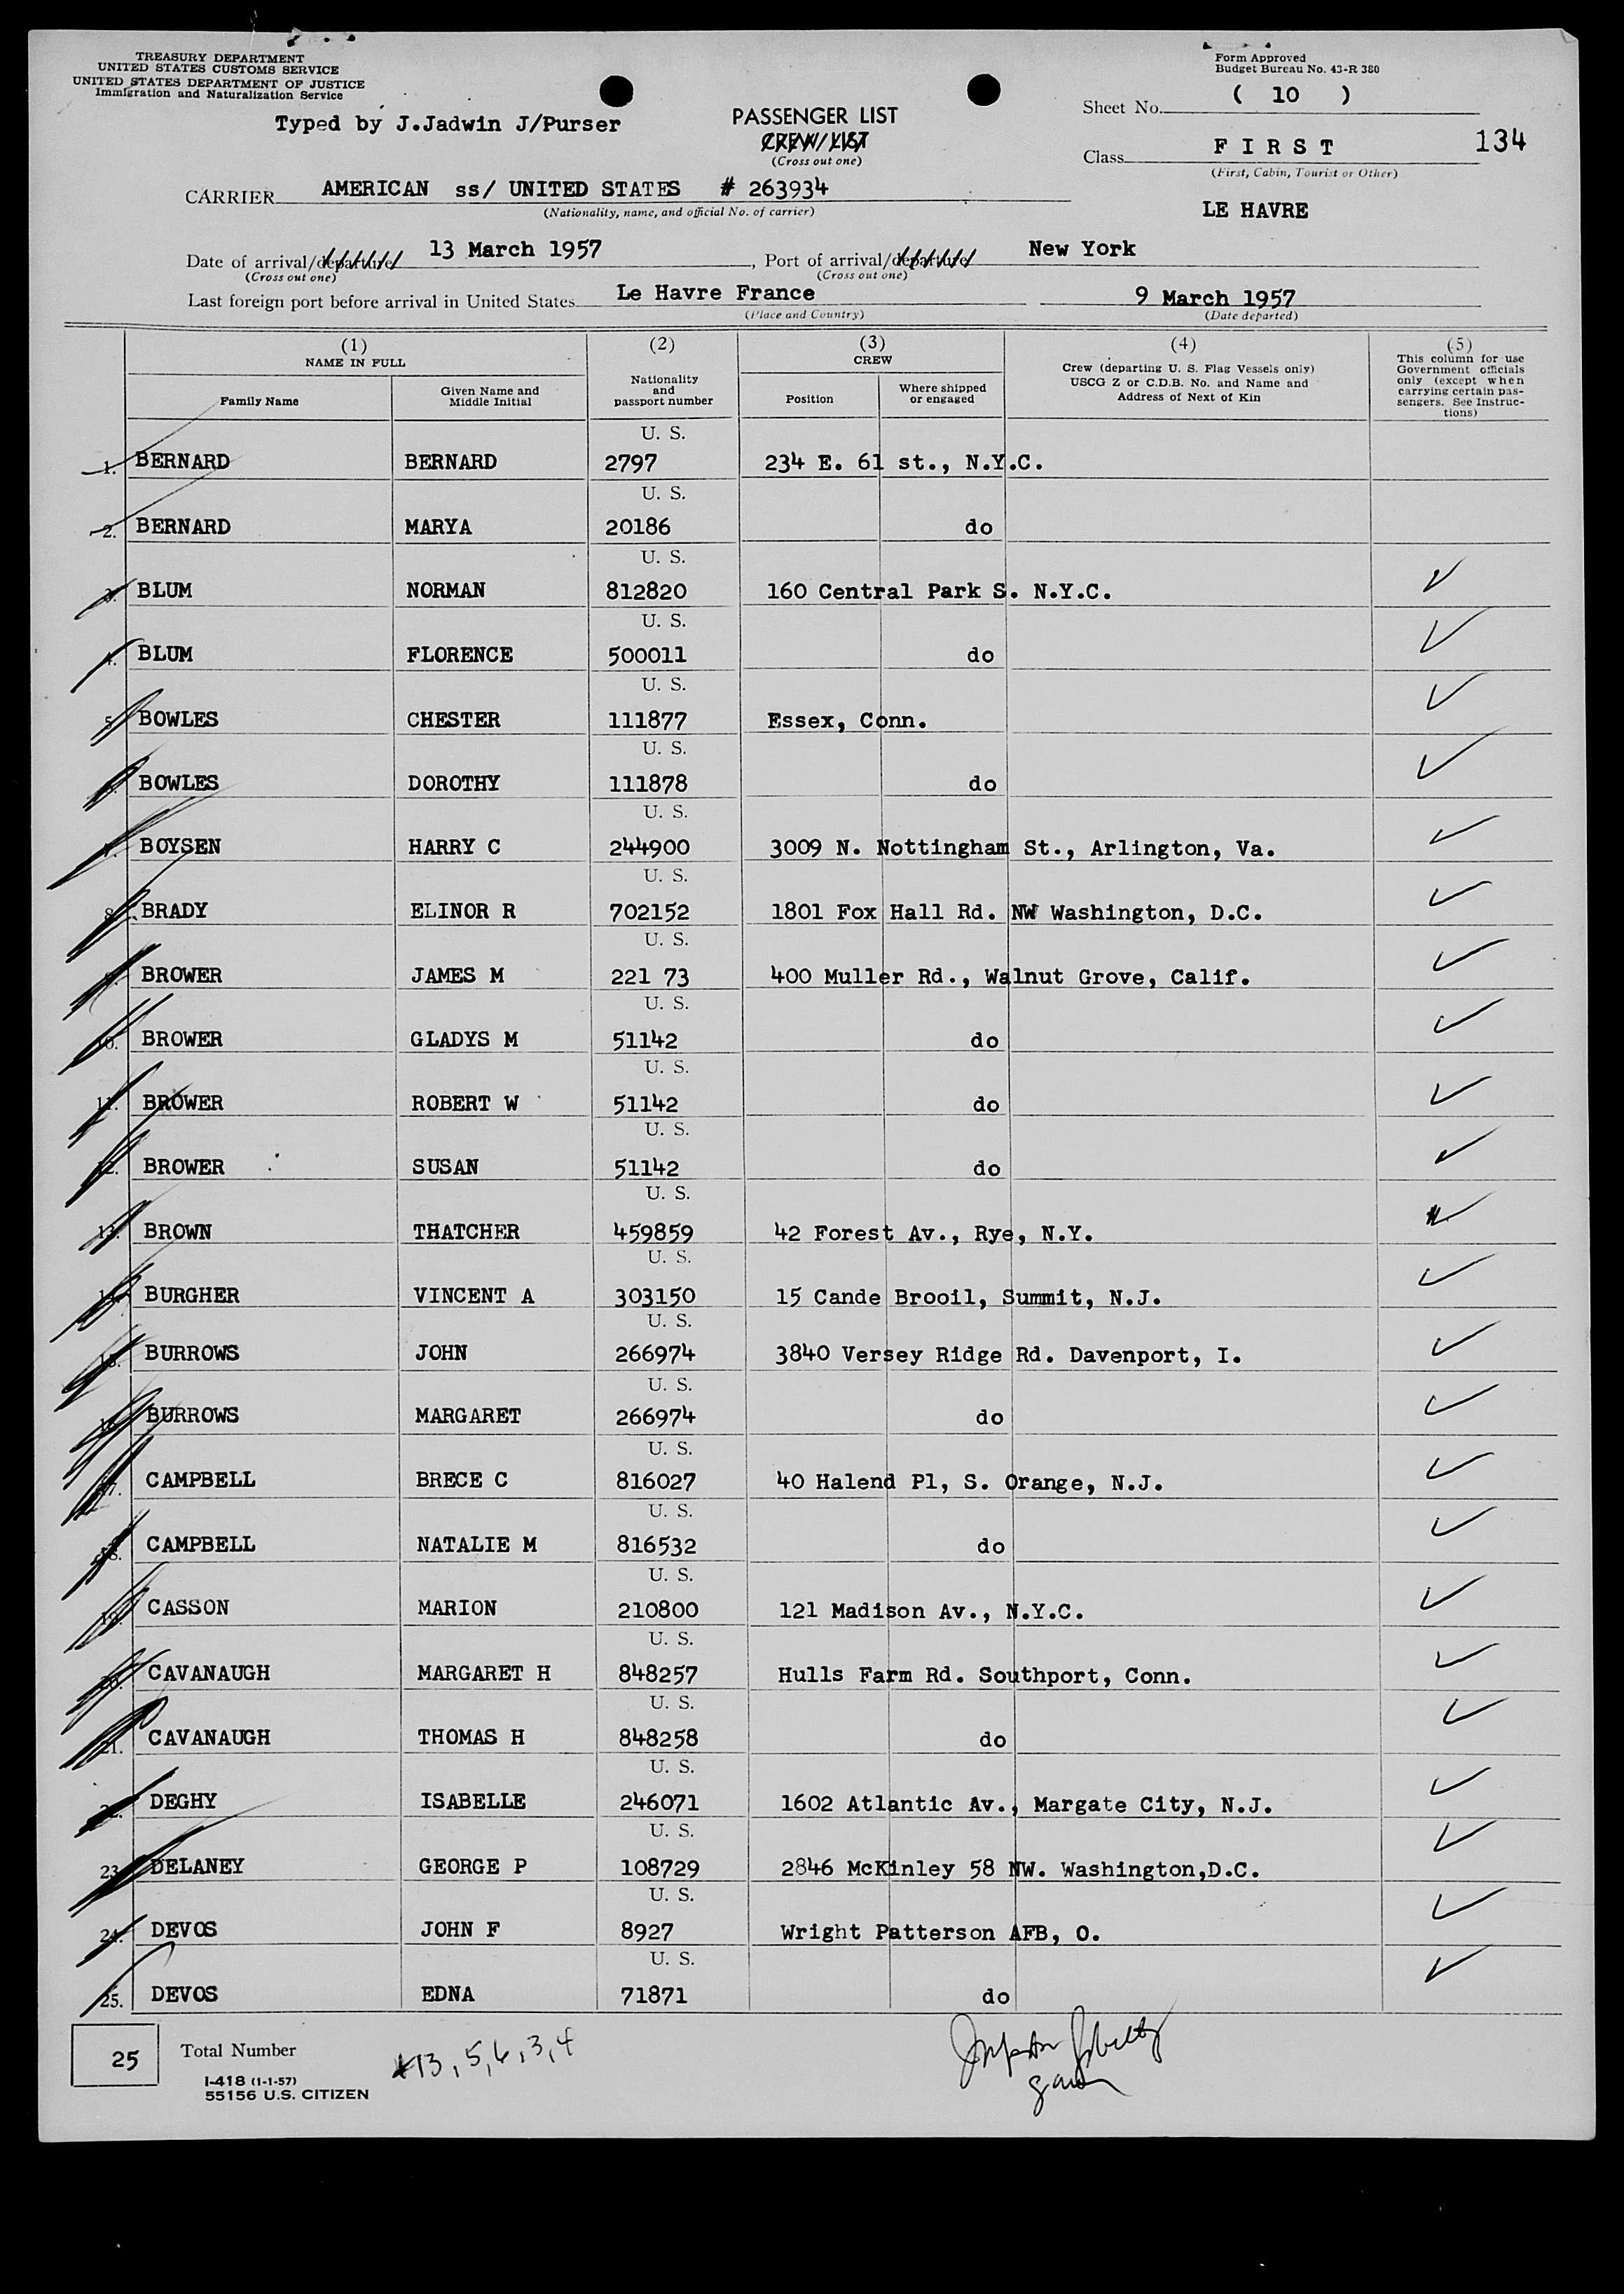 TREASURY DEPARTMENT
UNITED STATES CUSTOMS SERVICE
UNITED STATES DEPARTMENT OF JUSTICE
Immigration and Naturalization Service
Form Approved
Budget Bureau No. 43-R 380
Typed by J.Jadwin J/Purser
PASSENGER LIST
CREW/LIST
(Cross out one)
Sheet No. ( 10 )
Class F I R S T 134
(First, Cabin, Tourist or Other)
CARRIER AMERICAN ss/ UNITED STATES # 263934
(Nationality, name, and official No. of carrier)
LE HAVRE
Date of arrival/departure 13 March 1957, Port of arrival/departure New York
(Cross out one) (Cross out one)
Last foreign port before arrival in United States Le Havre France 9 March 1957
(Place and Country) (Date departed)
(1) NAME IN FULL (2) (3) CREW (4) (5)
Family Name Given Name and Middle Initial Nationality and passport number Position Where shipped or engaged Crew (departing U. S. Flag Vessels only) USCG Z or C.D.B. No. and Name and Address of Next of Kin This column for use Government officials only (except when carrying certain passengers. See Instructions)
U. S.
1. BERNARD BERNARD 2797 234 E. 61 st., N.Y.C.
U. S.
2. BERNARD MARYA 20186 do
U. S.
3. BLUM NORMAN 812820 160 Central Park S. N.Y.C.
U. S.
4. BLUM FLORENCE 500011 do
U. S.
5. BOWLES CHESTER 111877 Essex, Conn.
U. S.
6. BOWLES DOROTHY 111878 do
U. S.
7. BOYSEN HARRY C 244900 3009 N. Nottingham St., Arlington, Va.
U. S.
8. BRADY ELINOR R 702152 1801 Fox Hall Rd. NW Washington, D.C.
U. S.
9. BROWER JAMES M 221 73 400 Muller Rd., Walnut Grove, Calif.
U. S.
10. BROWER GLADYS M 51142 do
U. S.
11. BROWER ROBERT W 51142 do
U. S.
12. BROWER SUSAN 51142 do
U. S.
13. BROWN THATCHER 459859 42 Forest Av., Rye, N.Y.
U. S.
14. BURGHER VINCENT A 303150 15 Cande Brooil, Summit, N.J.
U. S.
15. BURROWS JOHN 266974 3840 Versey Ridge Rd. Davenport, I.
U. S.
16. BURROWS MARGARET 266974 do
U. S.
17. CAMPBELL BRECE C 816027 40 Halend Pl, S. Orange, N.J.
U. S.
18. CAMPBELL NATALIE M 816532 do
U. S.
19. CASSON MARION 210800 121 Madison Av., N.Y.C.
U. S.
20. CAVANAUGH MARGARET H 848257 Hulls Farm Rd. Southport, Conn.
U. S.
21. CAVANAUGH THOMAS H 848258 do
U. S.
22. DEGHY ISABELLE 246071 1602 Atlantic Av., Margate City, N.J.
U. S.
23. DELANEY GEORGE P 108729 2846 McKinley 58 NW. Washington,D.C.
U. S.
24. DEVOS JOHN F 8927 Wright Patterson AFB, O.
U. S.
25. DEVOS EDNA 71871 do
25 Total Number
13, 5, 6, 3, 4
I-418 (1-1-57)
55156 U.S. CITIZEN